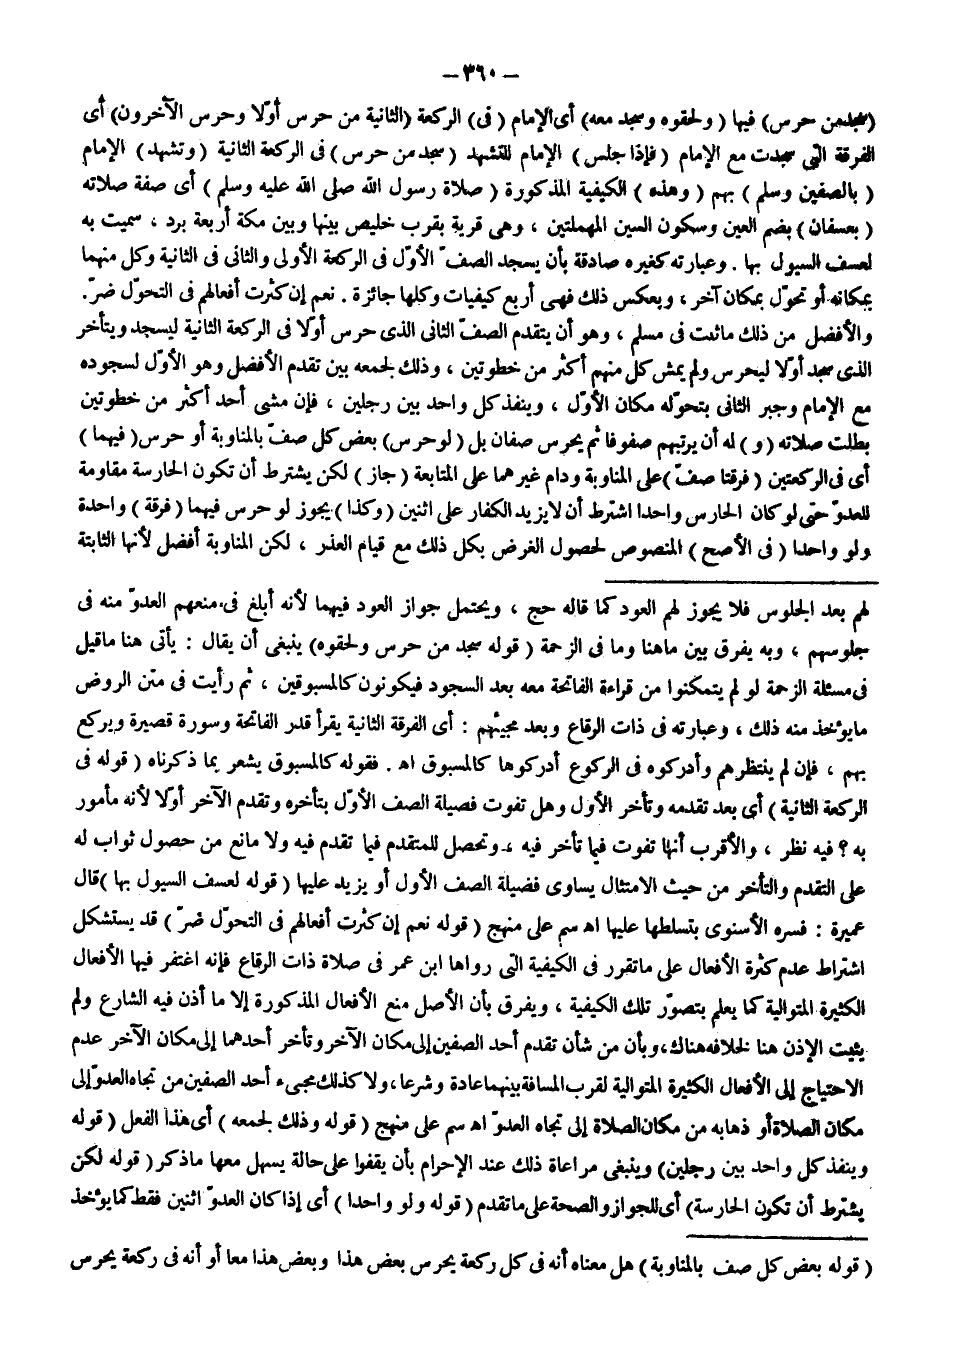 — ٣٦٠ —
(سجد من حرس) فيها (ولحقوه وسجد معه) أى الإمام (فى) الركعة (الثانية من حرس أوّلا وحرس الآخرون) أى
الفرقة التى سجدت مع الإمام (فإذا جلس) الإمام للتشهد (سجد من حرس) فى الركعة الثانية (وتشهد) الإمام
(بالصفين وسلم) بهم (وهذه) الكيفية المذكورة (صلاة رسول الله صلى الله عليه وسلم) أى صفة صلاته
(بعسفان) بضم العين وسكون السين المهملتين ، وهى قرية بقرب خليص بينها وبين مكة أربعة برد ، سميت به
لعسف السيول بها . وعبارته كغيره صادقة بأن يسجد الصف الأوّل فى الركعة الأولى والثانى فى الثانية وكل منهما
بمكانه أو تحوّل بمكان آخر ، وبعكس ذلك فهى أربع كيفيات وكلها جائزة . نعم إن كثرت أفعالهم فى التحوّل ضرّ.
والأفضل من ذلك ماثبت فى مسلم ، وهو أن يتقدم الصفّ الثانى الذى حرس أوّلا فى الركعة الثانية ليسجد ويتأخر
الذى سجد أوّلا ليحرس ولم يمش كل منهم أكثر من خطوتين ، وذلك لجمعه بين تقدم الأفضل وهو الأوّل لسجوده
مع الإمام وجبر الثانى بتحوّله مكان الأوّل ، وينفذ كل واحد بين رجلين ، فإن مشى أحد أكثر من خطوتين
بطلت صلاته (و) له أن يرتبهم صفوفا ثم يحرس صفان بل (لو حرس) بعض كل صفّ بالمناوبة أو حرس (فيهما)
أى فى الركعتين (فرقتا صفّ) على المناوبة ودام غيرهما على المتابعة (جاز) لكن يشترط أن تكون الحارسة مقاومة
للعدوّ حتى لو كان الحارس واحدا اشترط أن لا يزيد الكفار على اثنين (وكذا) يجوز لو حرس فيهما (فرقة) واحدة
ولو واحدا (فى الأصح) المنصوص لحصول الغرض بكل ذلك مع قيام العذر ، لكن المناوبة أفضل لأنها الثابتة
لهم بعد الجلوس فلا يجوز لهم العود كما قاله حج ، ويحتمل جواز العود فيهما لأنه أبلغ فى منعهم العدوّ منه فى
جلوسهم ، وبه يفرق بين ماهنا وما فى الزحمة (قوله سجد من حرس ولحقوه) ينبغى أن يقال : يأتى هنا ماقيل
فى مسئلة الزحمة لو لم يتمكنوا من قراءة الفاتحة معه بعد السجود فيكونون كالمسبوقين ، ثم رأيت فى متن الروض
مايؤخذ منه ذلك ، وعبارته فى ذات الرقاع وبعد مجيئهم : أى الفرقة الثانية يقرأ قدر الفاتحة وسورة قصيرة ويركع
بهم ، فإن لم ينتظرهم وأدركوه فى الركوع أدركوها كالمسبوق اه . فقوله كالمسبوق يشعر بما ذكرناه (قوله فى
الركعة الثانية) أى بعد تقدمه وتأخر الأول وهل تفوت فصيلة الصف الأوّل بتأخره وتقدم الآخر أوّلا لأنه مأمور
به ؟ فيه نظر ، والأقرب أنها تفوت فيما تأخر فيه ، وتحصل للمتقدم فيما تقدم فيه ولا مانع من حصول ثواب له
على التقدم والتأخر من حيث الامتثال يساوى فضيلة الصف الأول أو يزيد عليها (قوله لعسف السيول بها) قال
عميرة : فسره الأسنوى بتسلطها عليها اه سم على منهج (قوله نعم إن كثرت أفعالهم فى التحوّل ضرّ) قد يستشكل
اشتراط عدم كثرة الأفعال على ماتقرر فى الكيفية التى رواها ابن عمر فى صلاة ذات الرقاع فإنه اغتفر فيها الأفعال
الكثيرة المتوالية كما يعلم بتصوّر تلك الكيفية ، ويفرق بأن الأصل منع الأفعال المذكورة إلا ما أذن فيه الشارع ولم
يثبت الإذن هنا لخلافه هناك ، وبأن من شأن تقدم أحد الصفين إلى مكان الآخر وتأخر أحدهما إلى مكان الآخر عدم
الاحتياج إلى الأفعال الكثيرة المتوالية لقرب المسافة بينهما عادة وشرعا ، ولا كذلك مجىء أحد الصفين من تجاه العدوّ إلى
مكان الصلاة أو ذهابه من مكان الصلاة إلى تجاه العدوّ اه سم على منهج (قوله وذلك لجمعه) أى هذا الفعل (قوله
وينفذ كل واحد بين رجلين) وينبغى مراعاة ذلك عند الإحرام بأن يقفوا على حالة يسهل معها ماذكر (قوله لكن
يشترط أن تكون الحارسة) أى للجواز والصحة على ماتقدم (قوله ولو واحدا) أى إذا كان العدوّ اثنين فقط كما يؤخذ
(قوله بعض كل صف بالمناوبة) هل معناه أنه فى كل ركعة يحرس بعض هذا وبعض هذا معا أو أنه فى ركعة يحرس